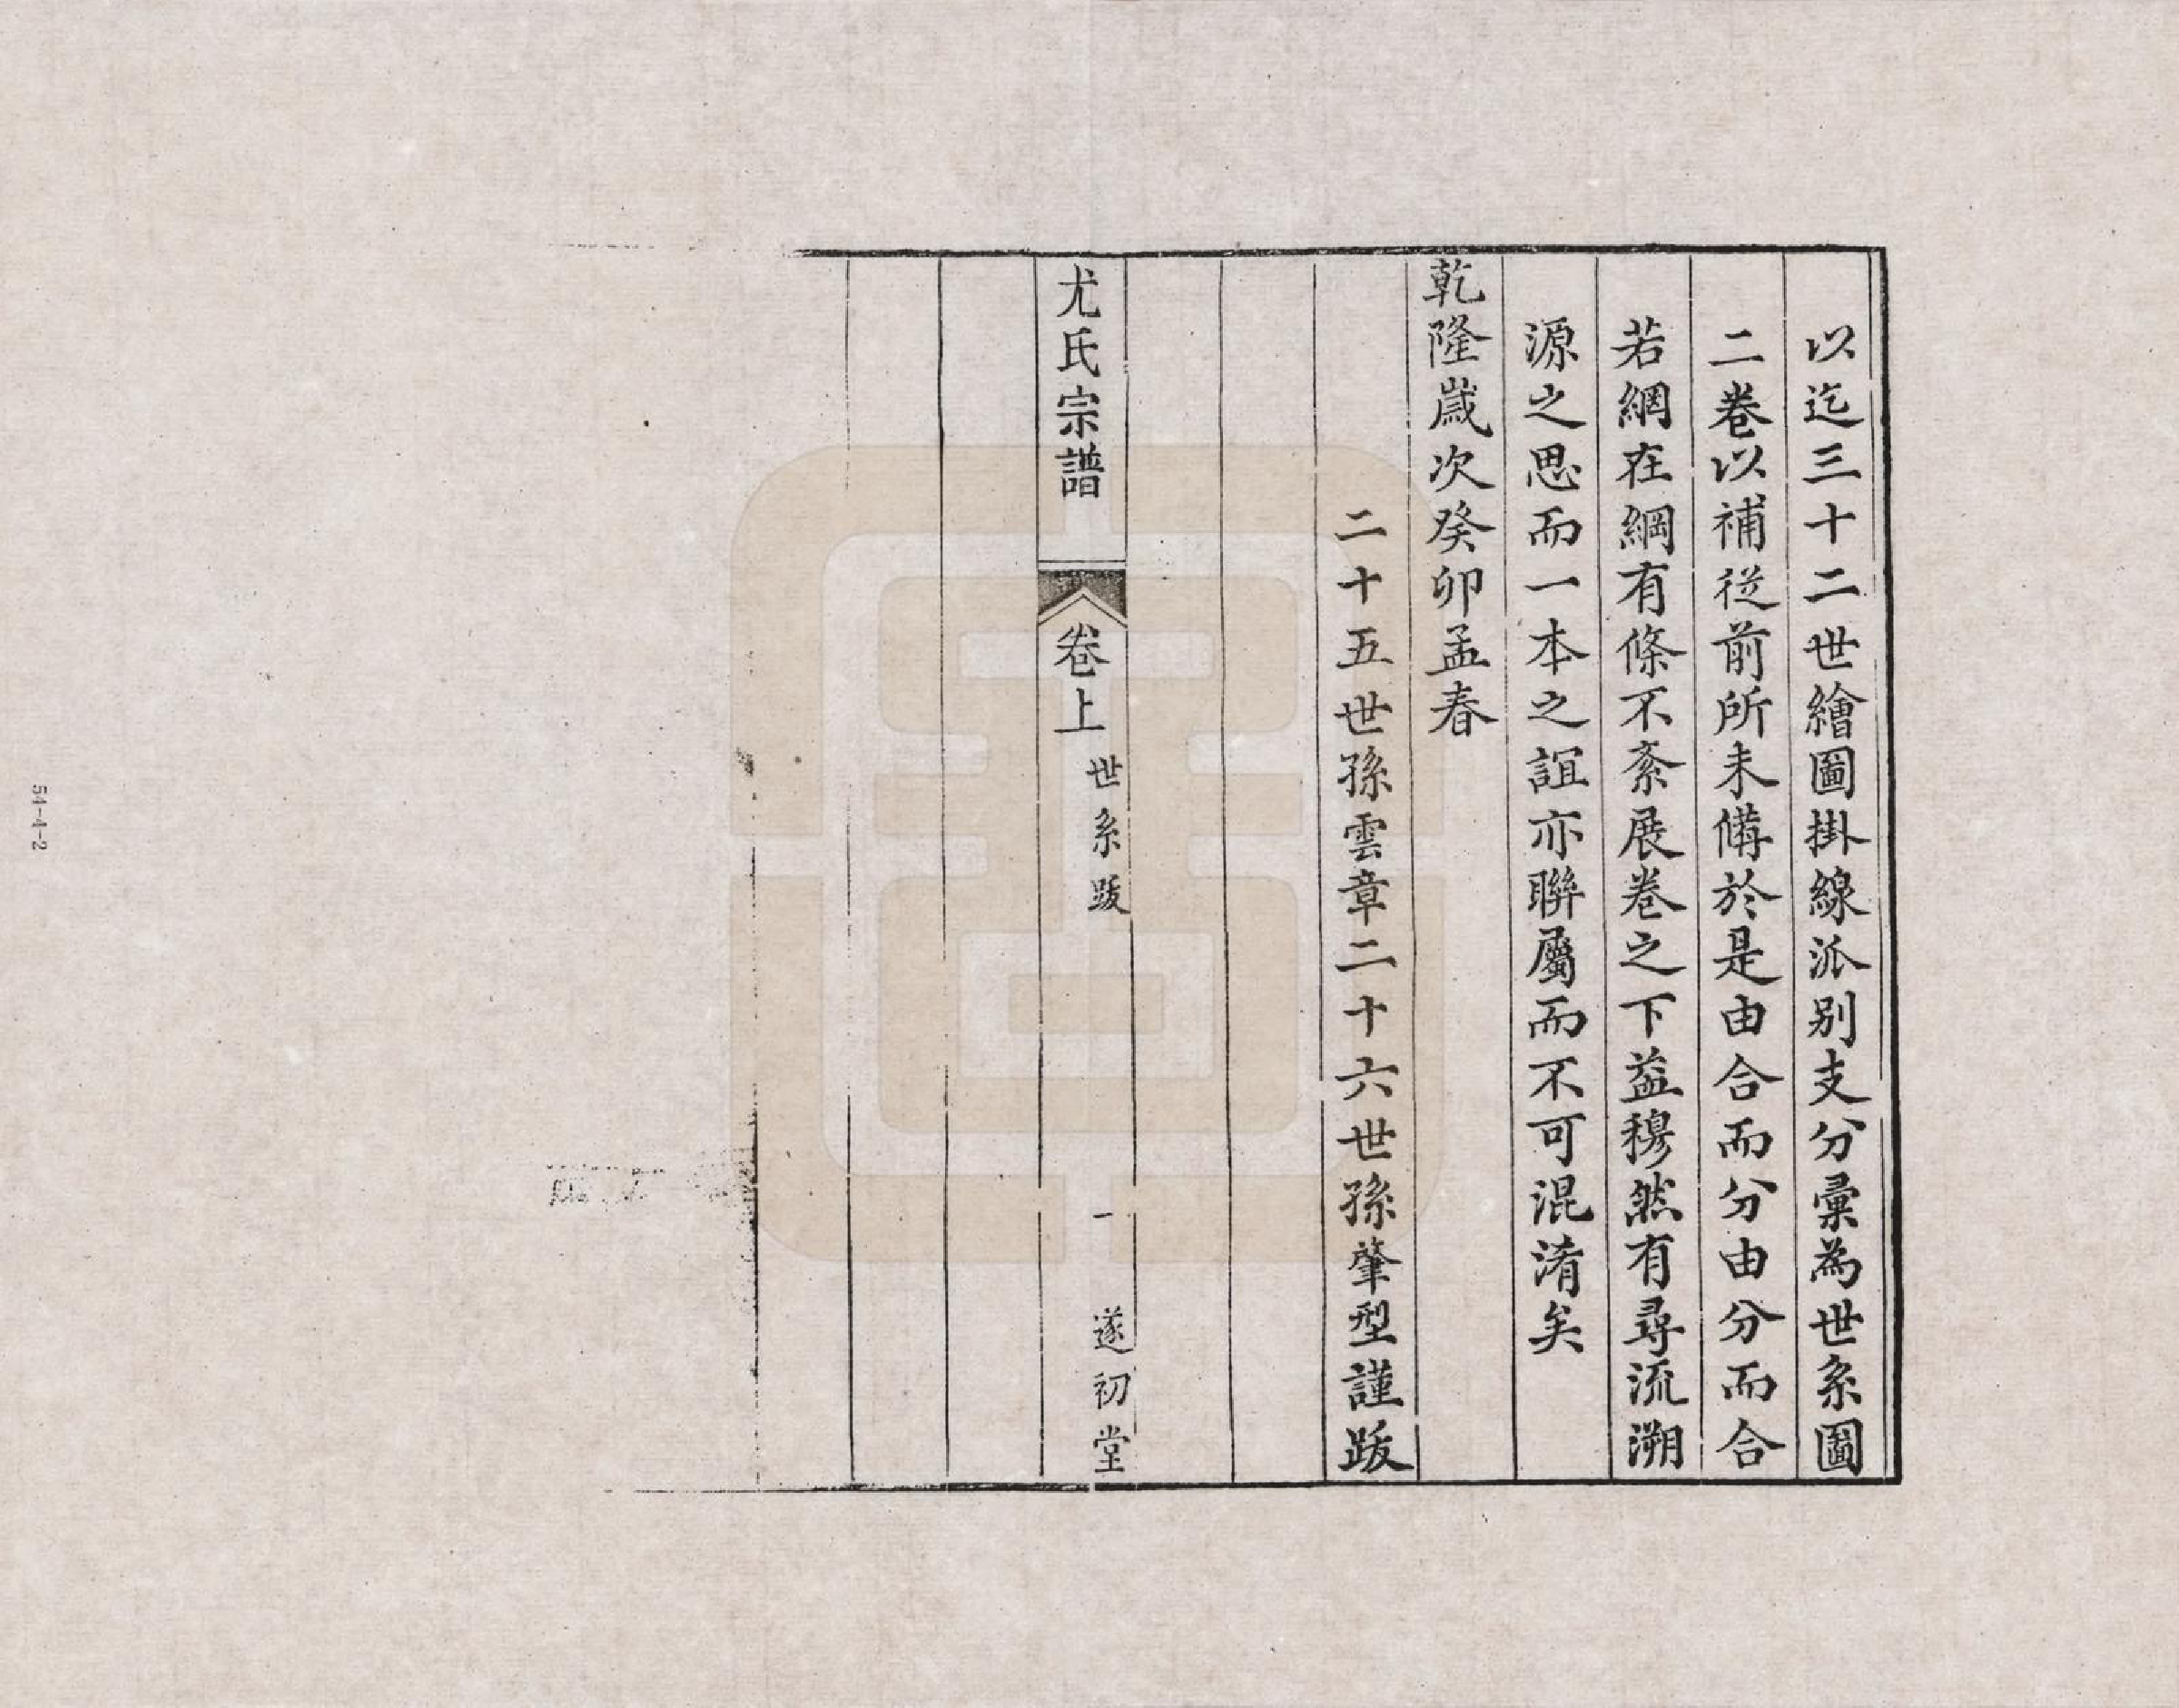 以迄三十二世繪圖掛線派别支分彙為世系圖
二卷以補從前所未備於是由合而分由分而合
若網在綱有條不紊展卷之下益穆然有尋流溯
源之思而一本之誼亦聯屬而不可混淆矣
乾隆歲次癸卯孟春
二十五世孫雲章二十六世孫肇型謹跋
尤氏宗譜 卷上 世系跋 一 遂初堂
54-4-2